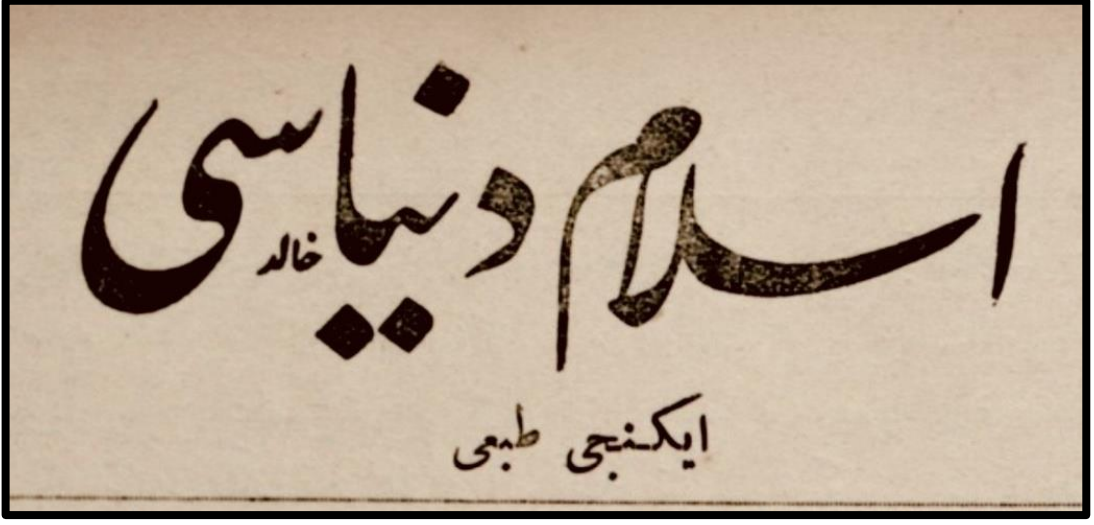 اسلام دنیاسی
خالد
ایکنجی طبعی